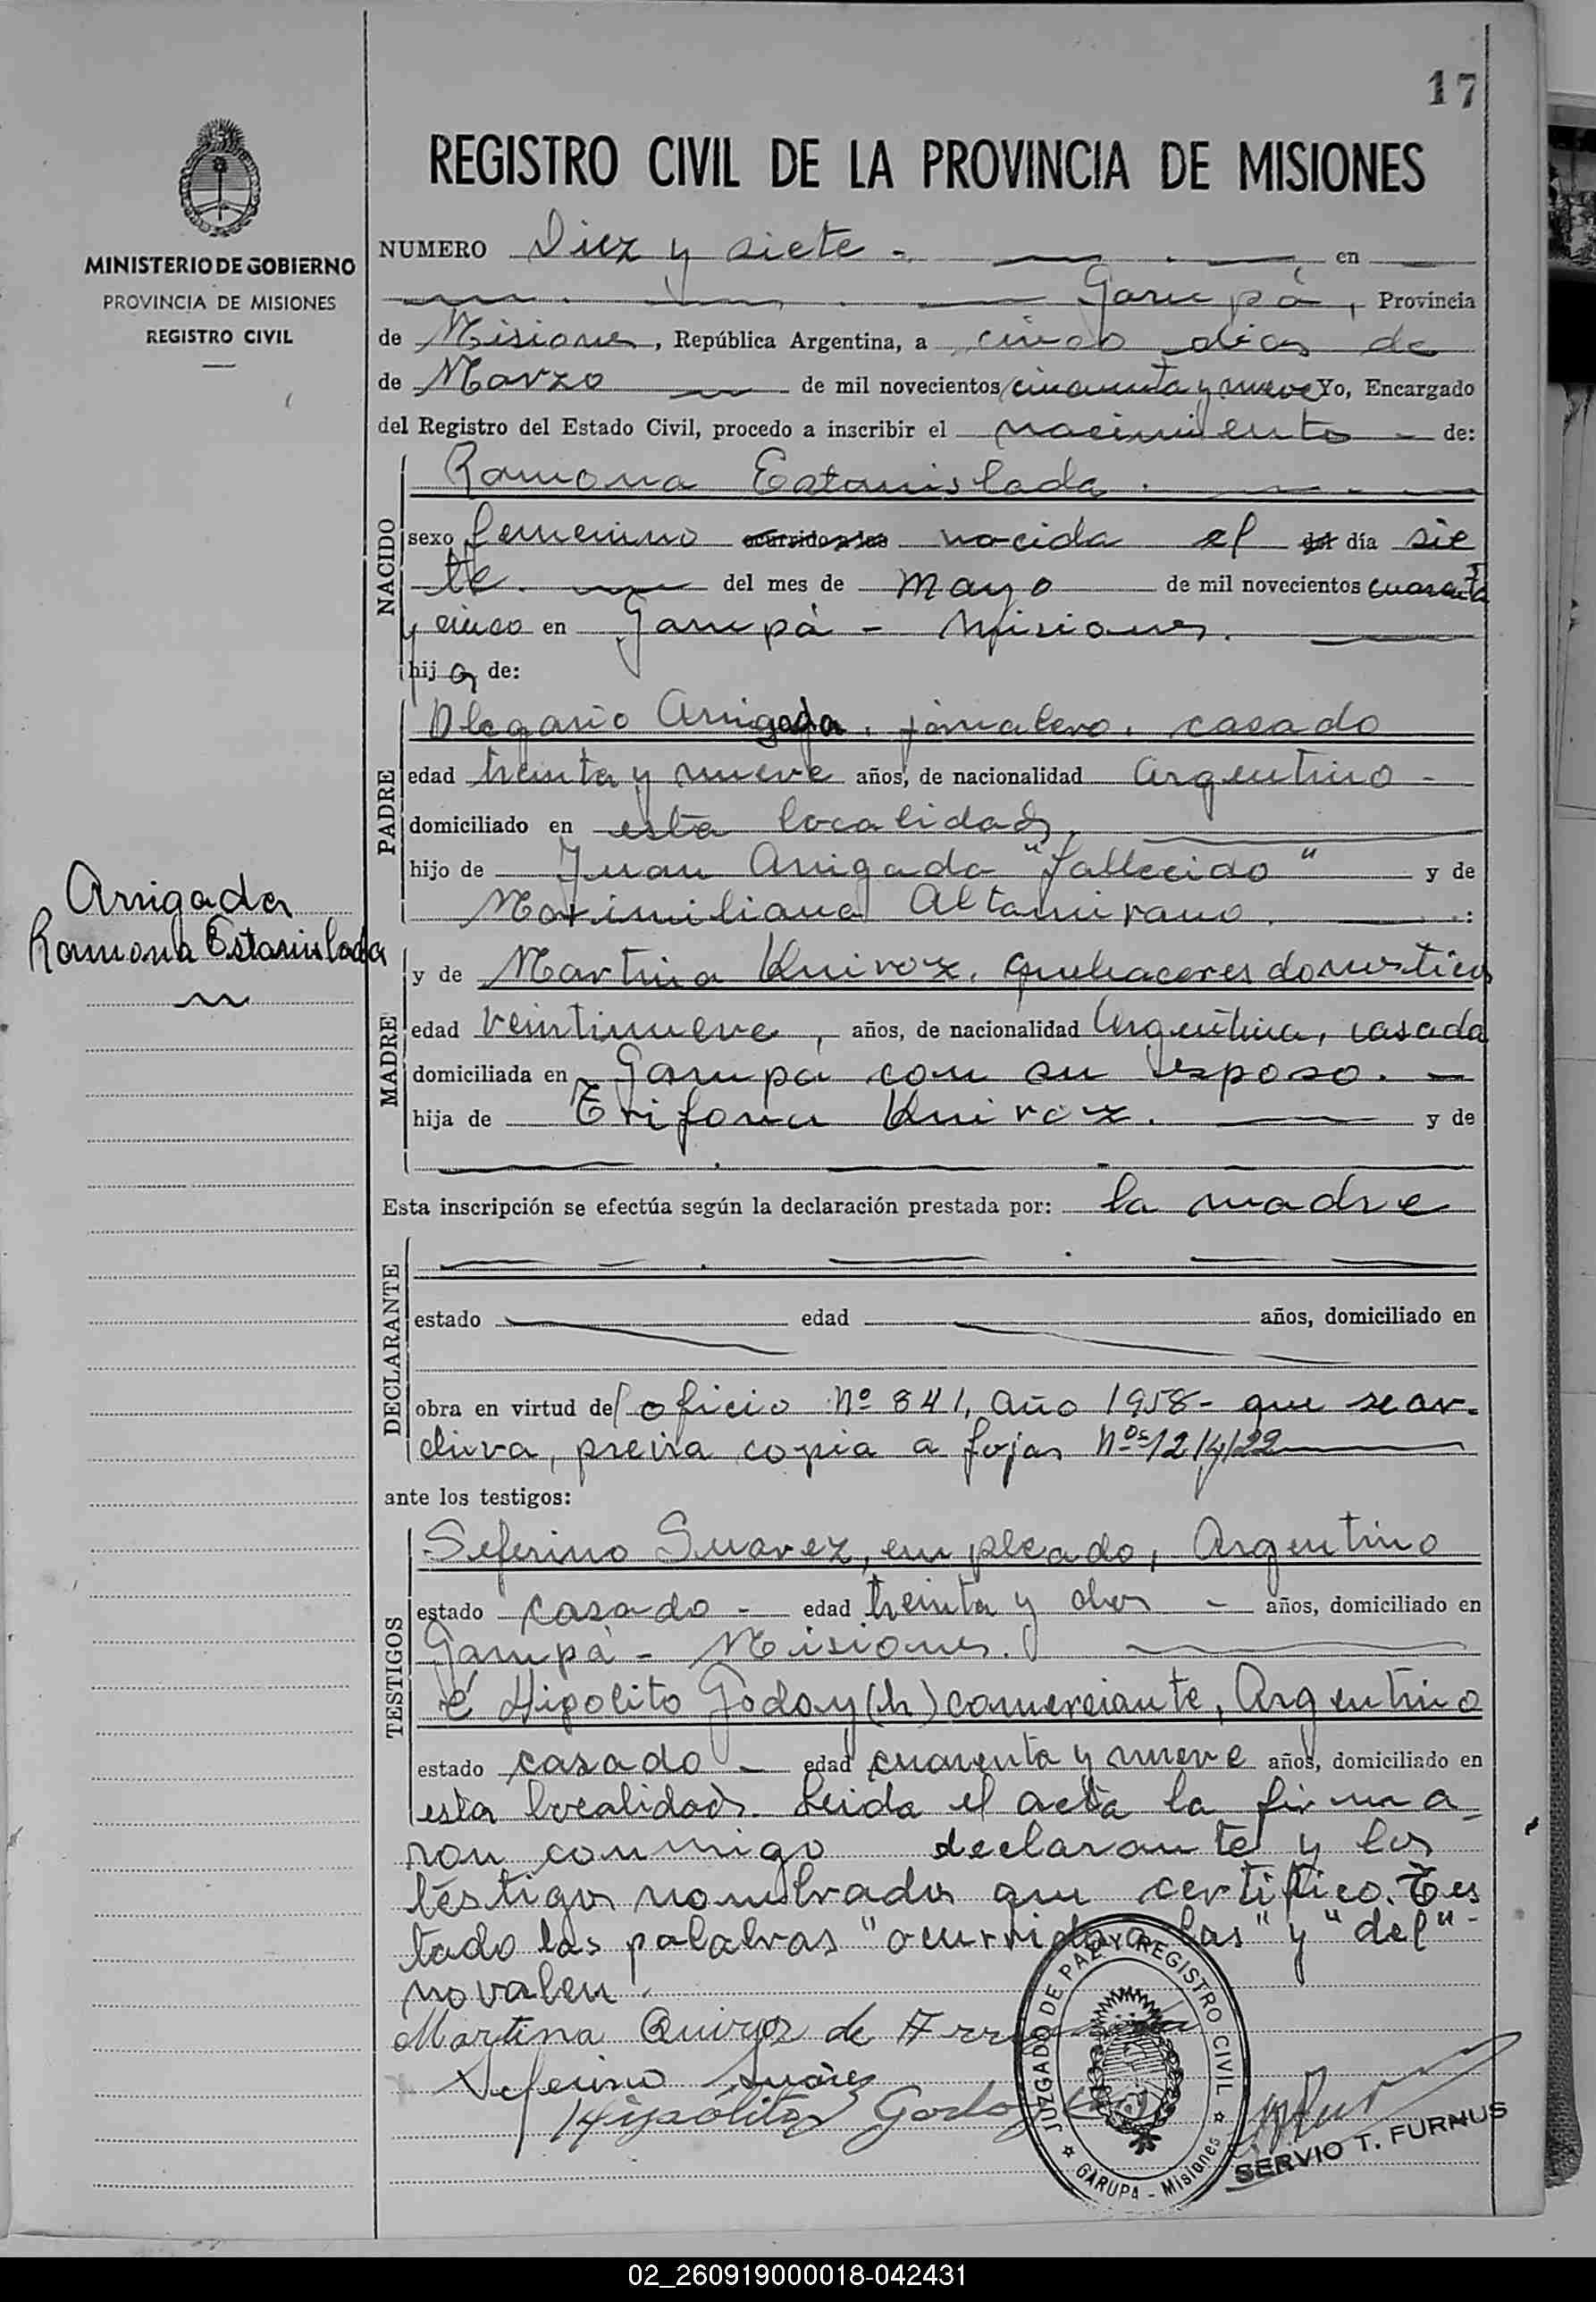 17
REGISTRO CIVIL DE LA PROVINCIA DE MISIONES
MINISTERIO DE GOBIERNO
PROVINCIA DE MISIONES
REGISTRO CIVIL
NUMERO Diez y siete - en
Garupá, Provincia
de Misiones, República Argentina, a cinco dias de
de Marzo de mil novecientos cincuenta y nueve Yo, Encargado
del Registro del Estado Civil, procedo a inscribir el nacimiento - de:
NACIDO
Ramona Estanislada.
sexo femenino ocurrido a las nacida el del día sie
te. del mes de mayo de mil novecientos cuarenta
y cinco en Garupá - Misiones.
hij a de:
PADRE
Olegario Arrigada, jornalero, casado
edad treinta y nueve años, de nacionalidad Argentino -
domiciliado en esta localidad,
hijo de Juan Arrigada "fallecido" y de
Maximiliana Altamirano.
Arrigada
Ramona Estanislada
MADRE
y de Martina Kuiroz, quehaceres domesticos
edad veintinueve, años, de nacionalidad Argentina, casada
domiciliada en Garupa con su esposo. -
hija de Trifona Kuiroz. y de
Esta inscripción se efectúa según la declaración prestada por: la madre
DECLARANTE
estado edad años, domiciliado en
obra en virtud del oficio Nº 841, año 1958 - que se ar-
chiva, previa copia a fojas Nos 121/122
ante los testigos:
TESTIGOS
Seferino Suarez, empleado, Argentino
estado casado - edad treinta y dos - años, domiciliado en
Garupá - Misiones.
é Hipolito Godoy (h) comerciante, Argentino
estado casado - edad cuarenta y nueve años, domiciliado en
esta localidad. Leida el acta la firma-
ron conmigo declarante y los
testigos nombrados que certifico. Tes
tado las palabras "ocurrido a las" y "del" -
no valen.
Martina Quiroz de Arrigada
Seferino Suáres
Hipólito Godoy
JUZGADO DE PAZ Y REGISTRO CIVIL
GARUPA - Misiones
SERVIO T. FURNUS
02_260919000018-042431